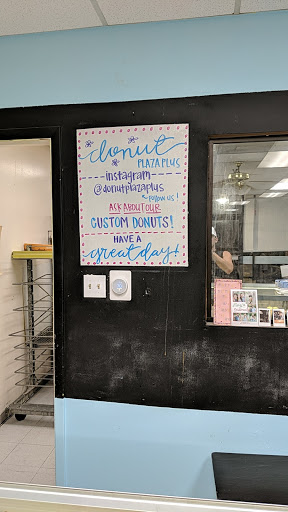 donut
PLAZA PLUS
instagram
@donutplazaplus
FOLLOW US!
ASK ABOUT OUR
CUSTOM DONUTS!
HAVE A
great day!